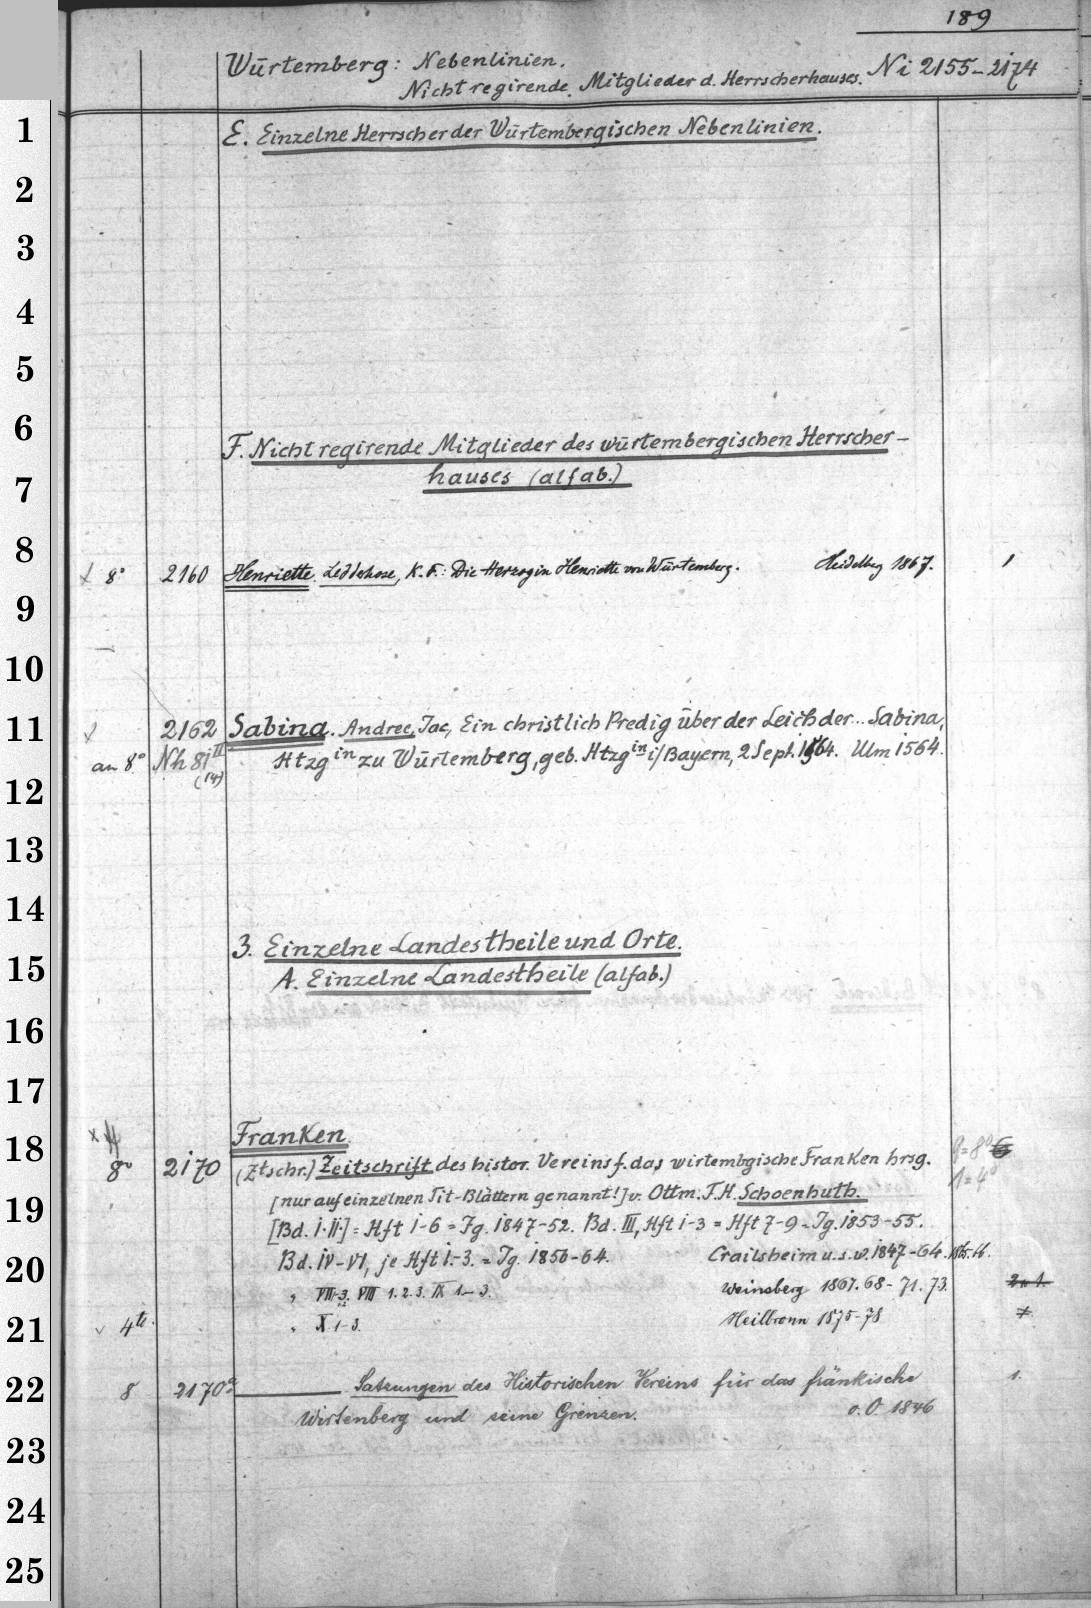 189
Würtemberg: Nebenlinien.
Nicht regirende Mitglieder d. Herrscherhauses. Ni 2155-2174
1
E. Einzelne Herrscher der Würtembergischen Nebenlinien.
2
3
4
5
6
F. Nicht regirende Mitglieder des würtembergischen Herrscher-
7
hauses (alfab.)
8
8° 2160 Henriette. Ledderhose, K. F.: Die Herzogin Henriette von Würtemberg. Heidelberg 1867. 1
9
10
11
2162 Sabina. Andree, Jac, Ein christlich Predig über der Leich der... Sabina,
an 8° Nh 81 III Htzgin zu Würtemberg, geb. Htzgin i/Bayern, 2 Sept. 1564. Ulm 1564.
(14)
12
13
14
3. Einzelne Landestheile und Orte.
15
A. Einzelne Landestheile (alfab.)
16
17
18
Franken.
8° 2170 (Ztschr.) Zeitschrift des histor. Vereins f. das wirtembgische Franken hrsg. 9=8° 6
19
[nur auf einzelnen Tit-Blättern genannt!] v. Ottm. F. H. Schoenhuth. 1=4°
[Bd. I.II.] = Hft 1-6 = Jg. 1847-52. Bd. III, Hft 1-3 = Hft 7-9 = Jg. 1853-55.
20
Bd. IV-VI, je Hft 1-3. = Jg. 1856-64. Crailsheim u.s.w. 1847-64. 1865.66.
„ VII-3. VIII 1. 2. 3. IX 1-3. Weinsberg 1867. 68-71. 73. 2 n 1.
21
4to. „ X 1-3. Heilbronn 1875-78
22
8 2170a Satzungen des Historischen Vereins für das fränkische 1.
Wirtenberg und seine Grenzen. o. O. 1846
23
24
25